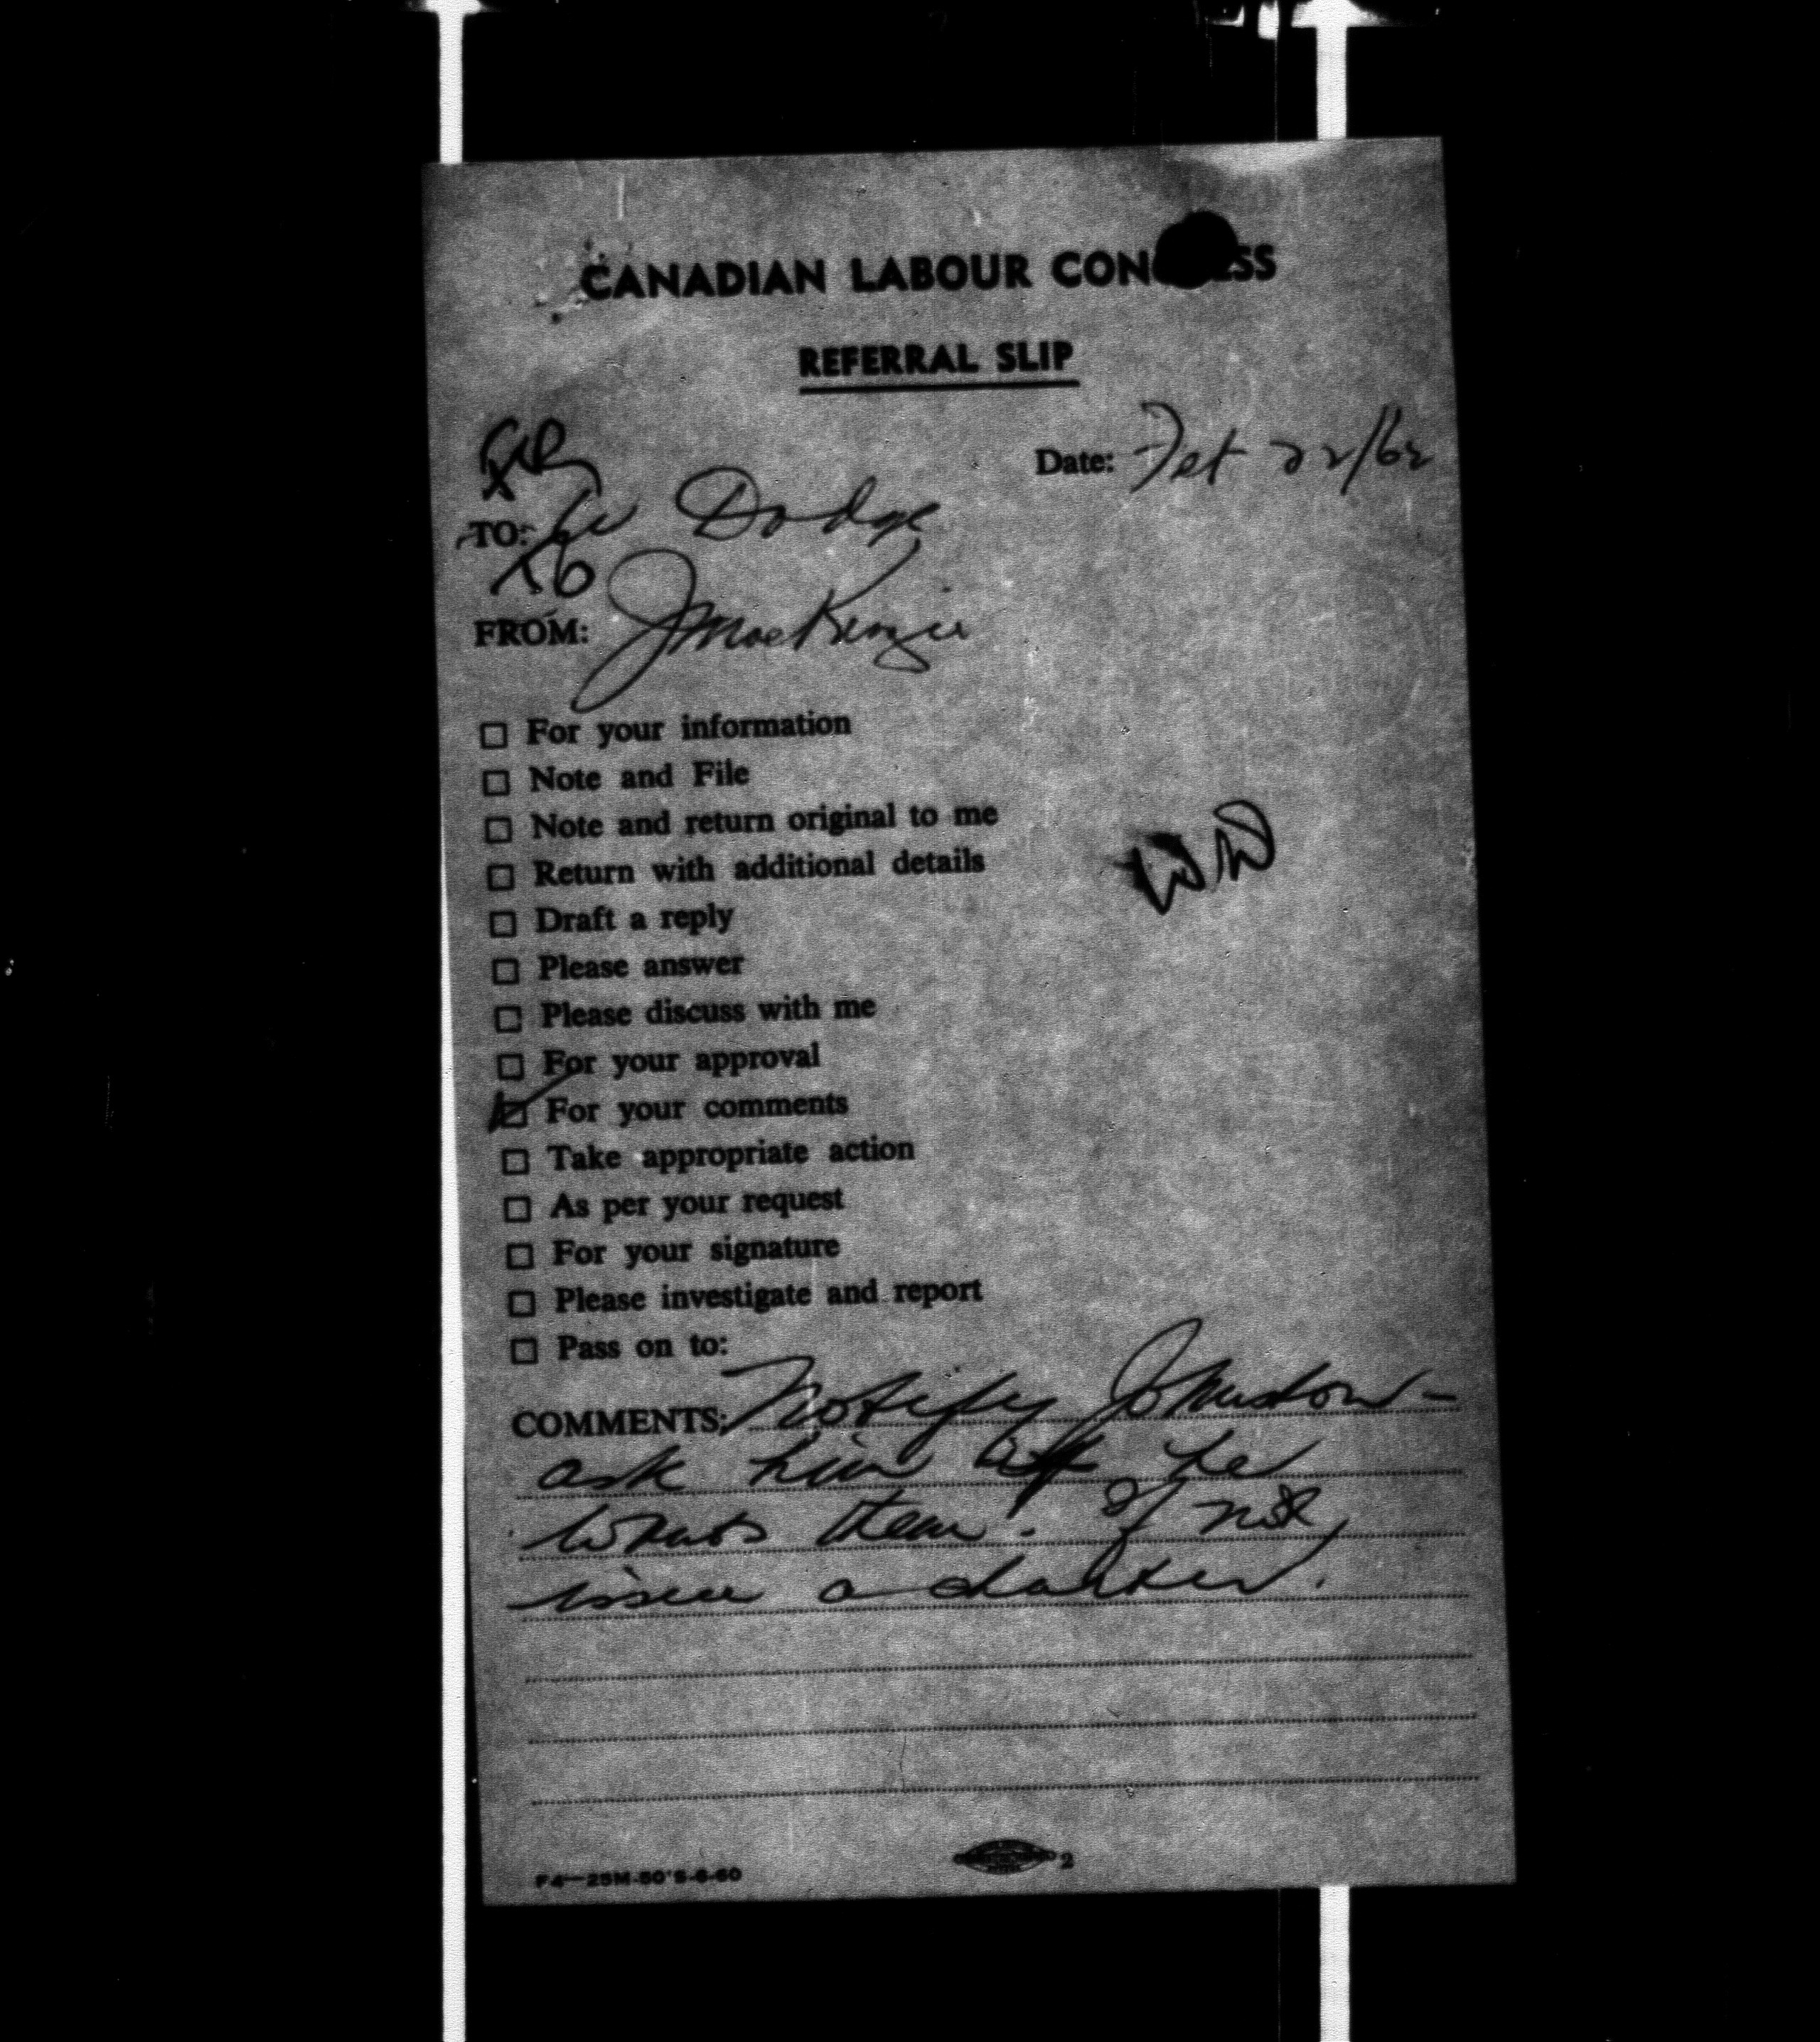 CANADIAN LABOUR CONGRESS
REFERRAL SLIP
Date: Feb 22/62
TO: W Dodge
FROM: J MacKenzie
☐ For your information
☐ Note and File
☐ Note and return original to me
☐ Return with additional details
WD
☐ Draft a reply
☐ Please answer
☐ Please discuss with me
☐ For your approval
☑ For your comments
☐ Take appropriate action
☐ As per your request
☐ For your signature
☐ Please investigate and report
☐ Pass on to:
COMMENTS: Notify Johnston -
ask him if he
wants them. If not,
issue a charter.
F4—25M-50'S-6-60
2